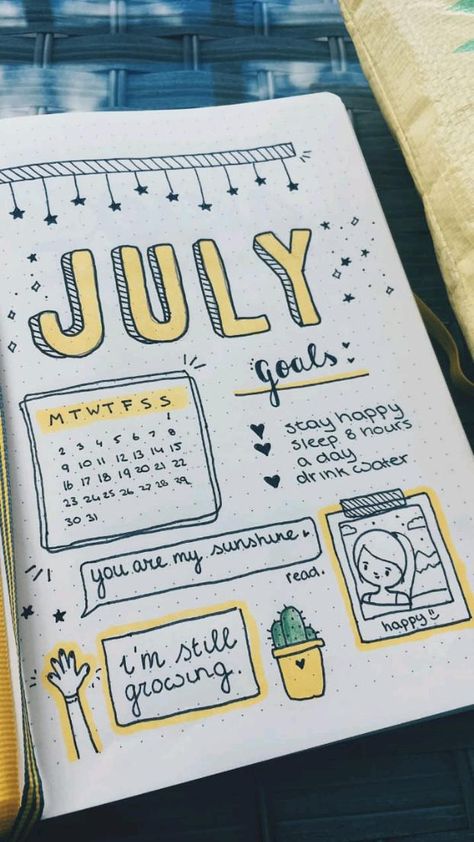 JULY
goals
stay happy
sleep 8 hours
a day
drink water
M T W T F S S
1
2 3 4 5 6 7 8
9 10 11 12 13 14 15
16 17 18 19 20 21 22
23 24 25 26 27 28 29
30 31
you are my sunshine
read.
happy
i'm still
growing.